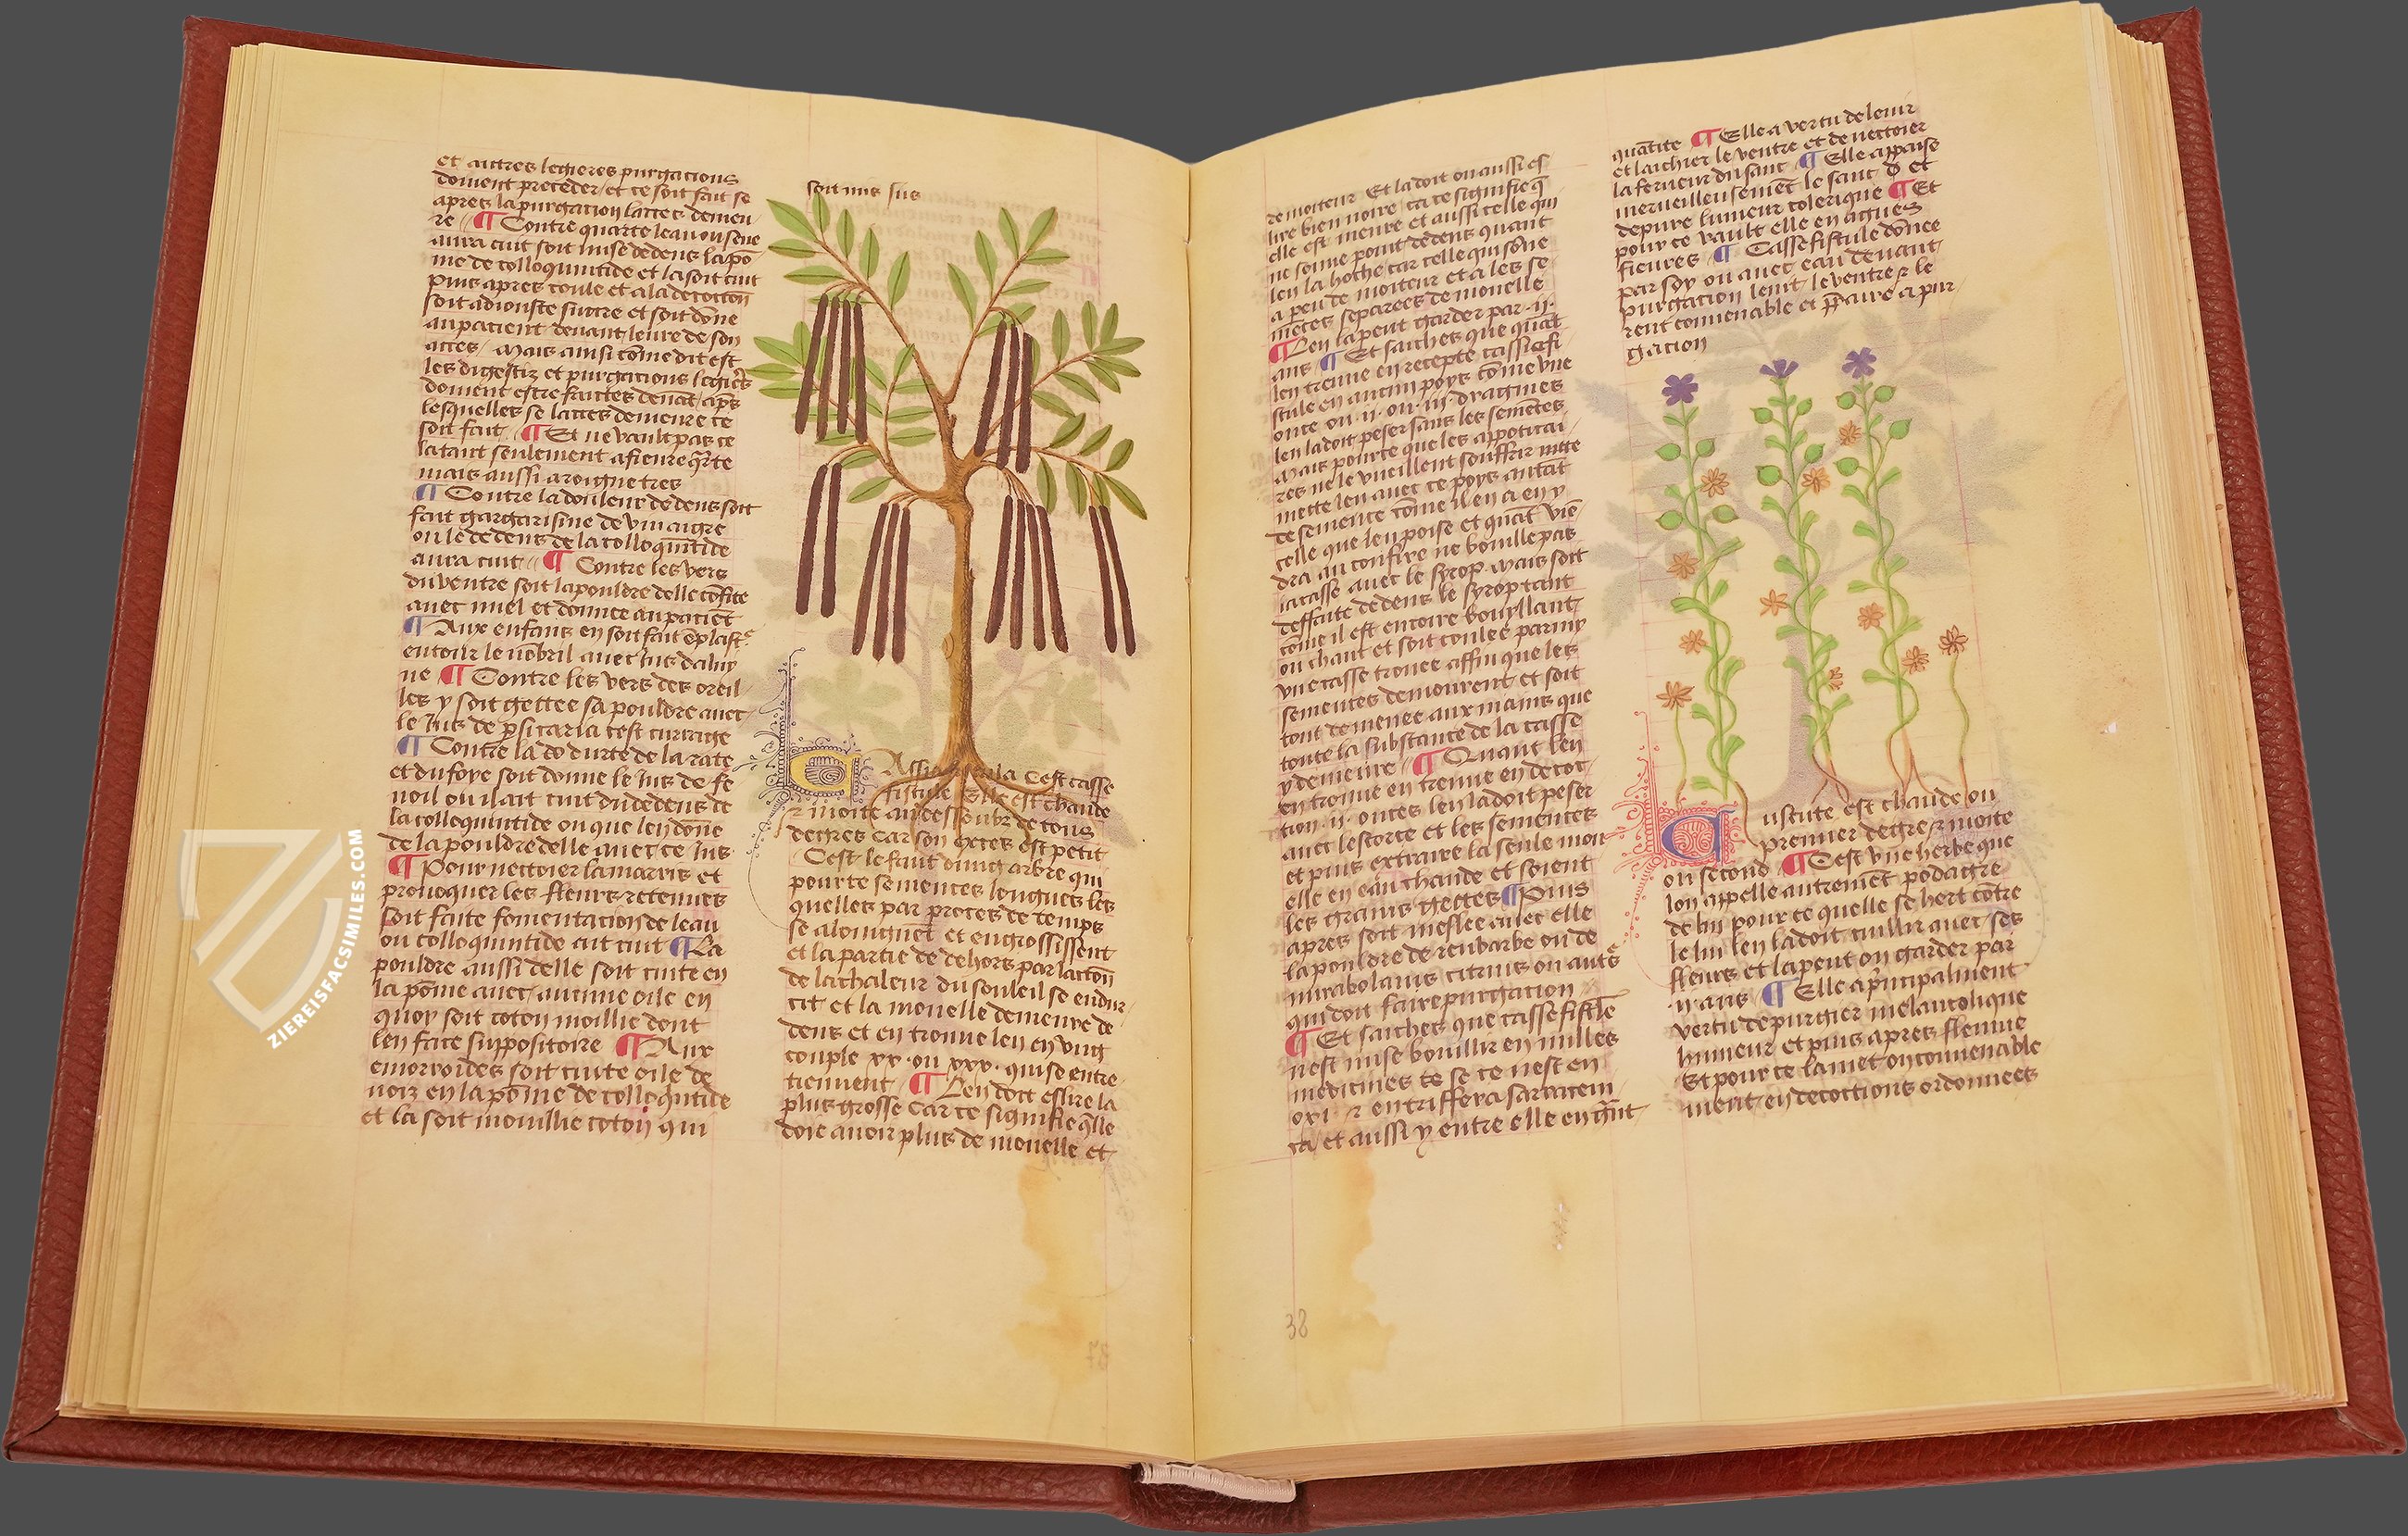 et autres legieres purgacions
doivent preceder / et ce soit fait se
apres la purgacion lacces demeu
re ¶ Contre quarte leau ou sene
aura cuit soit mise dedens la po
me de colloquintide et la soit cuit
puis apres coule et a la decoction
soit adiouste sucre et soit dōne
au pacient devant leure de son
acces / Mais ainsi cōme dit est
les digestiz et purgacions
doivent estre faictes
lesquelles se lacces demeure ce
soit fait ¶ Et ne vault pas ce
la tant seulement a fievre
mais aussi a rongne tres
¶ Contre la douleur de dens soit
fait gargarisme de vin aigre
ou le dedens de la colloquītide
aura cuit ¶ Contre les vers
du ventre soit la pouldre delle cōfite
avec miel et donnee au paciēt
¶ Aux enfans en soit fait
entour le nōbril avec ius daluy
ne ¶ Contre les vers des oreil
les y soit gettee sa pouldre avec
le ius de psicaria cest currage
¶ Contre la durte de la rate
et du foye soit donne le ius de fe
noil ou il ait cuit du dedens de
la colloquintide ou que len dōne
de la pouldre delle avec ce ius
¶ Pour nectoier la marris et
provoquer les fleurs retenues
soit faite fomentacion de leau
ou colloquintide ait cuit ¶ La
pouldre aussi delle soit cuite en
la pōme avec aucune oile en
quoy soit coton moillie dont
len face suppositoire ¶ Aux
emorroides soit cuite oile de
noiz en la pōme de colloquītide
et la soit mouillie coton qui
soit mis sus
Cassia fistula Cest casse
fistule Elle est chaude
et moite au dessoubz de tous
degres Car son exces est petit
Cest le fruit dung arbre qui
porte semences longues les
quelles par proces de temps
se aloingnēt et engrossissent
et la partie de dehors par lactoū
de la chaleur du souleil se endur
cit et la mouelle demeure de
dens et en trouve len en ung
couple xx. ou xxx. qui se entre
tiennent ¶ Len doit eslire la
plus grosse Car ce signifie qlle
doie avoir plus de mouelle et
de moitteur Et la doit on aussi es
lire bien noire ca ce signifie q̄
elle est meure et aussi celle qui
ne sonne point dedens quant
len la hoche car celle qui sōne
a peu de moiteur et a les se
mēces separees de mouelle
¶ Len la peut garder par .ii.
ans ¶ Et saiches que quāt
len treuve en recepte cassiafi
stule en aucun poys cōme une
once ou .ii. ou .iii. dragmes
len la doit peser sans les semēces
Mais pource que les appoticai
res ne le vueillent souffrir mitte
mette len avec ce poys autāt
de semence cōme il en a en y
celle que len poise et quāt vien
dra au confire ne bouille pas
la casse avec le syrop. Mais soit
deffaite dedens le syrop tant
cōme il est encore bouyllant
ou chaut et soit coulee parmy
une casse trouee affin que les
semences demourent et soit
tout demenee aux mains que
toute la substance de la casse
y demeure ¶ Quant len
en treuve en decoc
tion .ii. onces len la doit peser
avec lescorce et les semences
et puis extraire la seule mou
elle en eau chaude et soient
les grains gettes ¶ Puis
apres soit meslee avec elle
la pouldre de reubarbe ou de
mirabolanis citrins ou autres
qui doit faire purgacion
¶ Et saiches que cassefistle
nest mise bouillir en nulles
medicines se ce nest en
oxi. et en triffera sarracem
ca et aussi y entre elle en grāt
quātite ¶ Elle a vertu de lenir
et laichier le ventre et de nectoier
la ferveur du sanc ¶ Elle appaise
merveilleusement le sanc et
depure lumeur colerique ¶ Et
pour ce vault elle en agues
fievres ¶ Cassefistule dōnee
par soy ou avec eau devant
purgacion lenit le ventre et le
rent convenable et ppaire a pur
gacion
Cuscute est chaude ou
premier degre et moite
ou second ¶ Cest une herbe que
lon appelle autremēt podagre
de lin pour ce quelle se hert cōtre
le lin len la doit cuillir avec ses
fleurs et la peut on garder par
ii. ans ¶ Elle a prīcipalment
vertu de purgier melancolique
humeur et puis apres fleume
Et pour ce la met on convenable
ment en decoctions ordonnees
38
ZIEREISFACSIMILES.COM